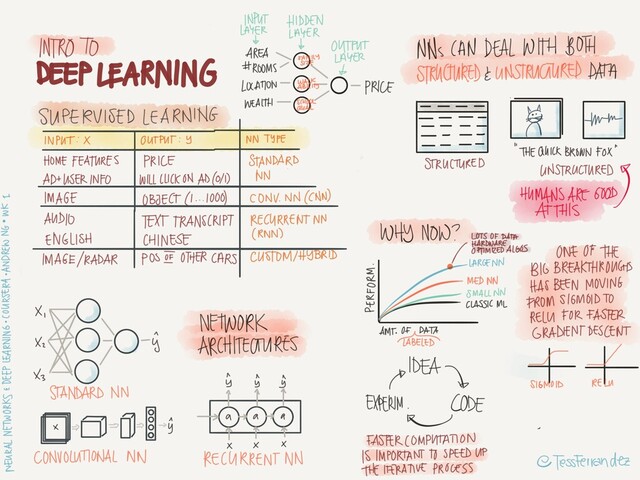 INTRO TO
DEEP LEARNING
INPUT
LAYER
HIDDEN
LAYER
OUTPUT
LAYER
AREA
# ROOMS
LOCATION
WEALTH
PRICE
SUPERVISED LEARNING
INPUT: X OUTPUT: y NN TYPE
HOME FEATURES PRICE STANDARD
AD+USER INFO WILL CLICK ON AD (0/1) NN
IMAGE OBJECT (1...1000) CONV. NN (CNN)
AUDIO TEXT TRANSCRIPT RECURRENT NN
ENGLISH CHINESE (RNN)
IMAGE/RADAR POS OF OTHER CARS CUSTOM/HYBRID
X1
X2
X3
ŷ
STANDARD NN
X
ŷ
CONVOLUTIONAL NN
NETWORK
ARCHITECTURES
ŷ ŷ ŷ
a a a
X X X
RECURRENT NN
NNs CAN DEAL WITH BOTH
STRUCTURED & UNSTRUCTURED DATA
STRUCTURED
"THE QUICK BROWN FOX"
UNSTRUCTURED
HUMANS ARE GOOD
AT THIS
WHY NOW?
LOTS OF DATA
HARDWARE
OPTIMIZED ALGOS
LARGE NN
MED NN
SMALL NN
CLASSIC ML
PERFORM.
AMT. OF DATA
LABELED
IDEA
CODE
EXPERIM.
FASTER COMPUTATION
IS IMPORTANT TO SPEED UP
THE ITERATIVE PROCESS
ONE OF THE
BIG BREAKTHROUGHS
HAS BEEN MOVING
FROM SIGMOID TO
RELU FOR FASTER
GRADIENT DESCENT
SIGMOID RELU
NEURAL NETWORKS & DEEP LEARNING • COURSERA • ANDREW NG • WK 1
@TessFerrandez